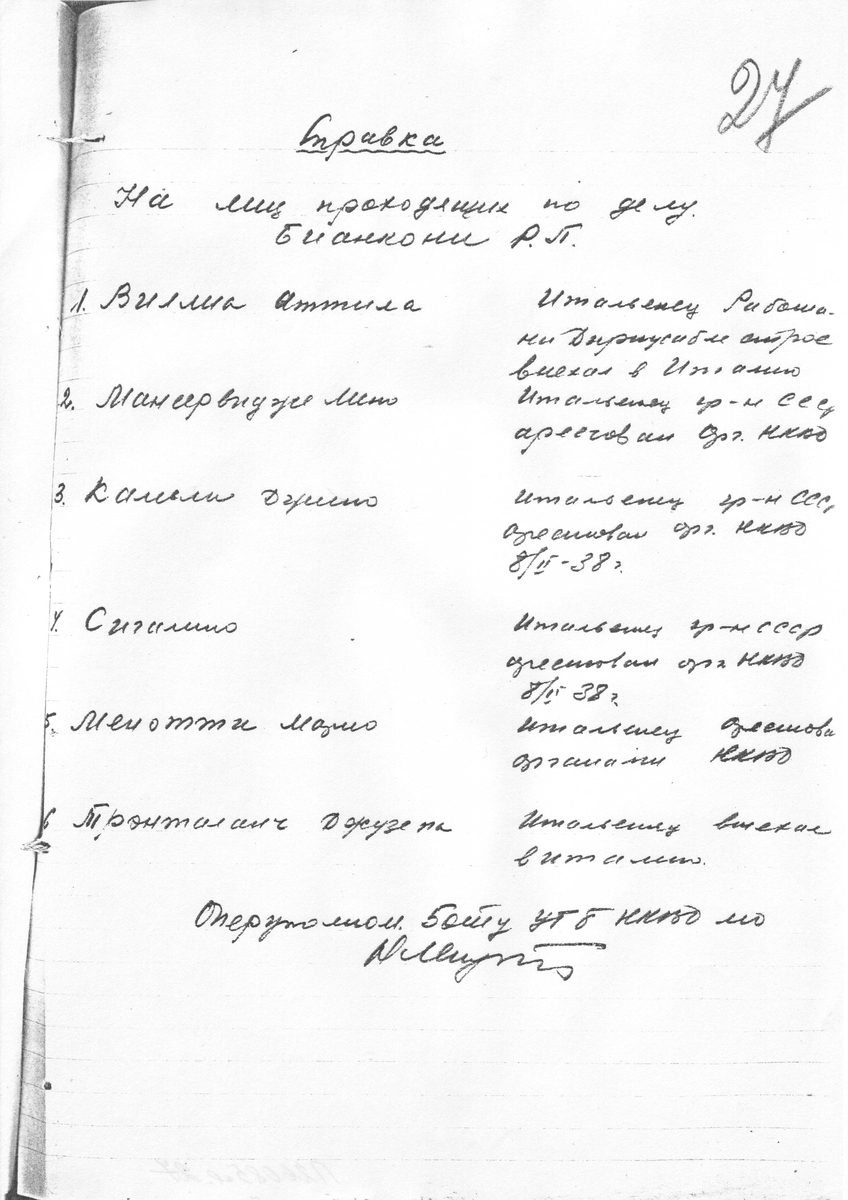 27
Справка
На лиц проходящих по делу
Бианкони Р.П.
1. Виллиа Аттила
Итальенец Работал
на Дирижаблестрое
выехал в Италию
2. Мансервиджи Мино
Итальенец гр-н СССР
арестован орг. НКВД
3. Камели Джино
Итальенец гр-н СССР
арестован орг. НКВД
8/II-38г.
4. Сигалино
Итальенец гр-н СССР
арестован орг. НКВД
8/II-38г.
5. Менотти Марио
Итальенец арестова
органами НКВД
6 Джузепа
Итальенец выехал
в Италию.
Оперуполном. 5 отд УГБ НКВД МО